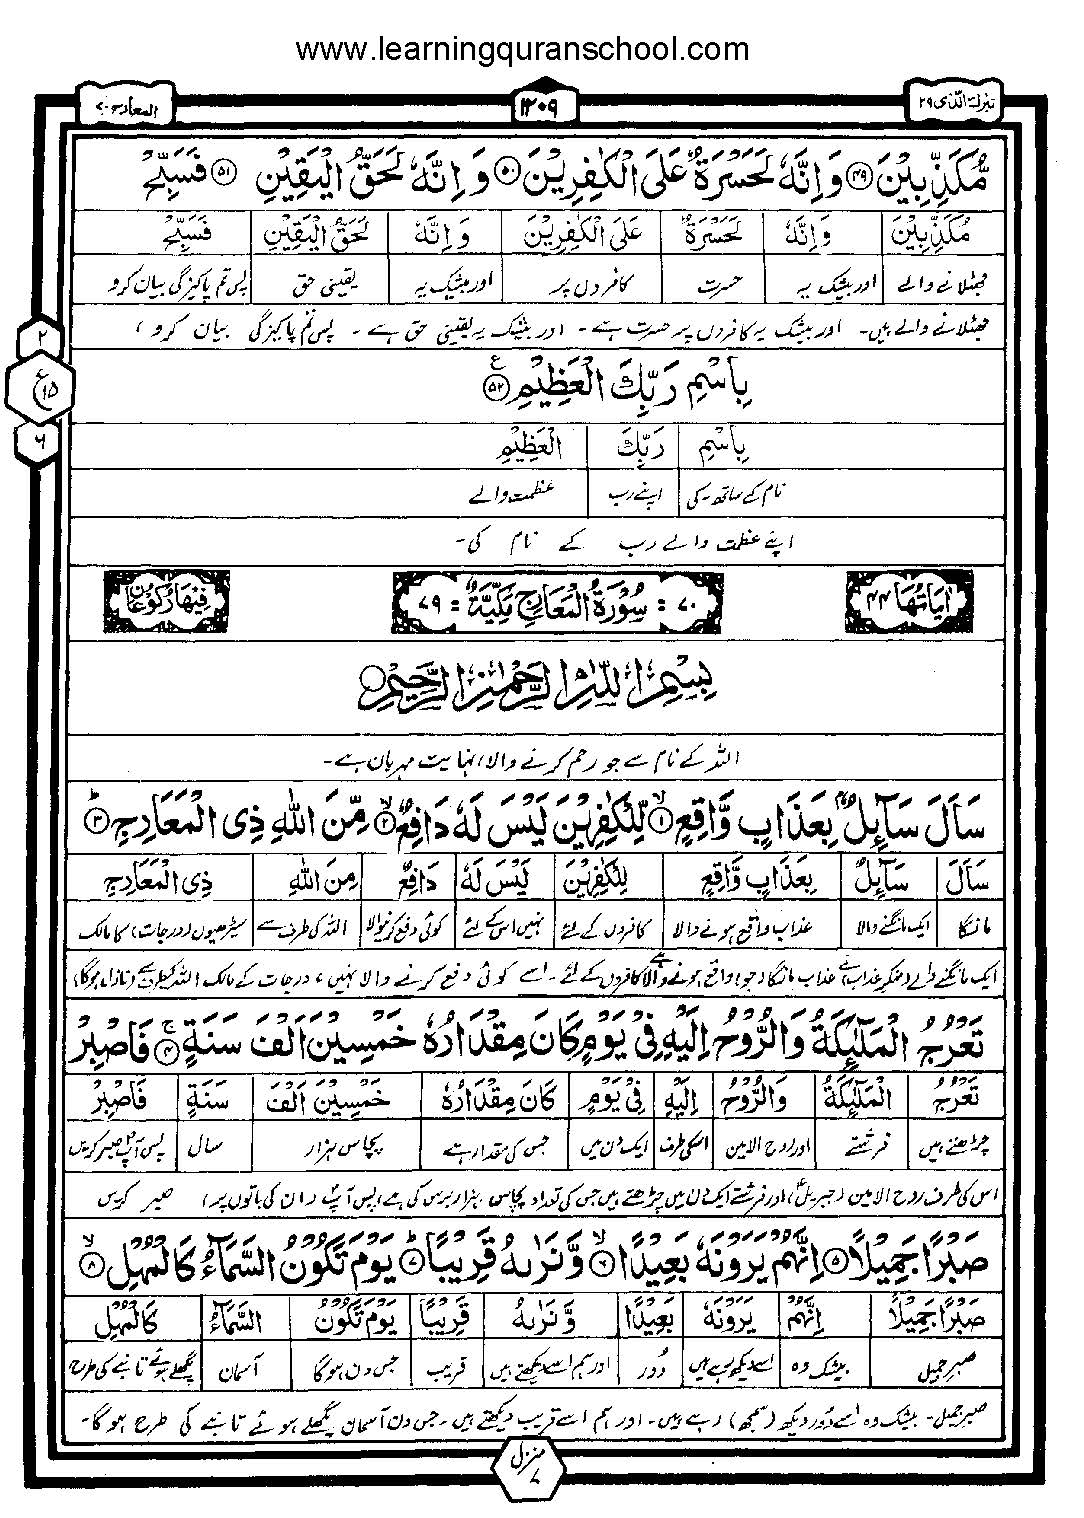 www.learningquranschool.com
تبٰرك الذی ٢٩
١٣٠٩
المعارج ٧٠
مُّكَذِّبِيْنَ ﴿٤٩﴾ وَ اِنَّهٗ لَحَسْرَةٌ عَلَى الْكٰفِرِيْنَ ﴿٥٠﴾ وَ اِنَّهٗ لَحَقُّ الْيَقِيْنِ ﴿٥١﴾ فَسَبِّحْ
مُّكَذِّبِيْنَ وَ اِنَّهٗ لَحَسْرَةٌ عَلَى الْكٰفِرِيْنَ وَ اِنَّهٗ لَحَقُّ الْيَقِيْنِ فَسَبِّحْ
جھٹلانے والے اور بیشک یہ حسرت کافروں پر اور بیشک یہ یقینی حق پس تم پاکیزگی بیان کرو
جھٹلانے والے ہیں۔ اور بیشک یہ کافروں پر حسرت ہے۔ اور بیشک یہ یقینی حق ہے۔ پس تم پاکیزگی بیان کرو )
٢
ع ١٥
٦
بِاسْمِ رَبِّكَ الْعَظِيْمِ ﴿٥٢﴾ ع
بِاسْمِ رَبِّكَ الْعَظِيْمِ
نام کے ساتھ۔کی اپنے رب عظمت والے
اپنے عظمت والے رب کے نام کی۔
اٰیَاتُهَا ٤٤
٧٠ = سُوْرَةُ الْمَعَارِجِ مَكِّيَّةٌ = ٧٩
فِيْهَا رُكُوْعَانِ
بِسْمِ اللّٰهِ الرَّحْمٰنِ الرَّحِيْمِ
اللہ کے نام سے جو رحم کرنے والا، نہایت مہربان ہے۔
سَاَلَ سَآئِلٌۢ بِعَذَابٍ وَّاقِعٍ ﴿١﴾ لِّلْكٰفِرِيْنَ لَيْسَ لَهٗ دَافِعٌ ﴿٢﴾ مِّنَ اللّٰهِ ذِي الْمَعَارِجِ ﴿٣﴾
سَاَلَ سَآئِلٌ بِعَذَابٍ وَّاقِعٍ لِلْكٰفِرِيْنَ لَيْسَ لَهٗ دَافِعٌ مِنَ اللّٰهِ ذِي الْمَعَارِجِ
مانگا ایک مانگنے والا عذاب واقع ہونے والا کافروں کے لئے نہیں اس کے لئے کوئی دفع کرنیوالا اللہ کی طرف سے سیڑھیوں (درجات) کا مالک
ایک مانگنے والے عذاب مانگا (جو) واقع ہونے والا کافروں کے لئے۔ اسے کوئی دفع کرنے والا نہیں، درجات کے مالک اللہ کیطرف سے (نازل ہوگا)
تَعْرُجُ الْمَلٰٓئِكَةُ وَالرُّوْحُ اِلَيْهِ فِيْ يَوْمٍ كَانَ مِقْدَارُهٗ خَمْسِيْنَ اَلْفَ سَنَةٍ ﴿٤﴾ فَاصْبِرْ
تَعْرُجُ الْمَلٰٓئِكَةُ وَالرُّوْحُ اِلَيْهِ فِيْ يَوْمٍ كَانَ مِقْدَارُهٗ خَمْسِيْنَ اَلْفَ سَنَةٍ فَاصْبِرْ
چڑھتے ہیں فرشتے اور روح الامین اسکی طرف ایک دن میں جس کی مقدار ہے پچاس ہزار سال پس آپؐ صبر کریں
اس کی طرف روح الامین (جبریلؑ) اور فرشتے ایک دن میں چڑھتے ہیں جس کی تعداد پچاس ہزار برس کی ہے، پس آپؐ (ان کی باتوں پر) صبر کریں
صَبْرًا جَمِيْلًا ﴿٥﴾ اِنَّهُمْ يَرَوْنَهٗ بَعِيْدًا ﴿٦﴾ وَّ نَرٰىهُ قَرِيْبًا ﴿٧﴾ يَوْمَ تَكُوْنُ السَّمَآءُ كَالْمُهْلِ ﴿٨﴾
صَبْرًا جَمِيْلًا اِنَّهُمْ يَرَوْنَهٗ بَعِيْدًا وَّ نَرٰىهُ قَرِيْبًا يَوْمَ تَكُوْنُ السَّمَآءُ كَالْمُهْلِ
صبر جمیل بیشک وہ اسے دیکھ رہے ہیں دُور اور ہم اسے دیکھتے ہیں قریب جس دن ہوگا آسمان پگھلے ہوئے تانبے کی طرح
صبر جمیل۔ بیشک وہ اسے دُور دیکھ (سمجھ) رہے ہیں۔ اور ہم اسے قریب دیکھتے ہیں۔ جس دن آسمان پگھلے ہوئے تانبے کی طرح ہو گا۔
منزل
٧